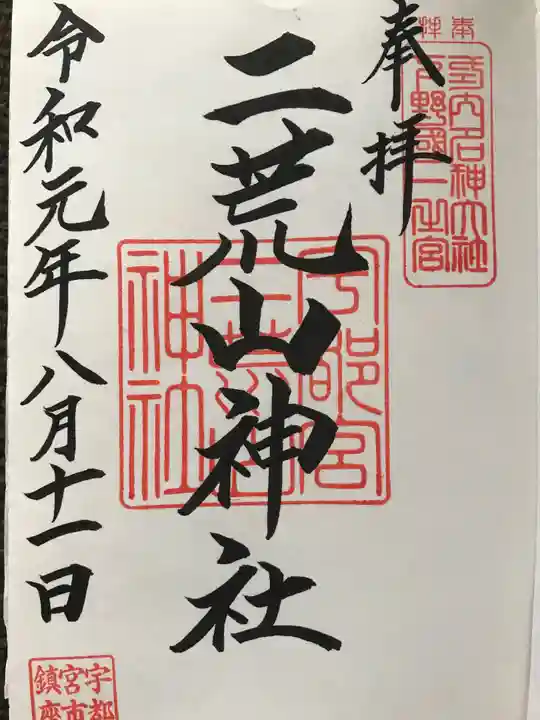 奉拝
奉拜
式内名神大社
下野國一之宮
二荒山神社
宇都宮
二荒山
神社
令和元年八月十一日
宇都
宮市
鎮座